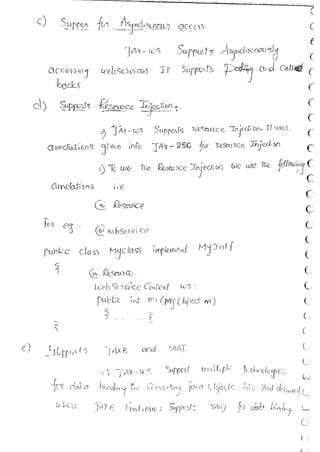 c) Suppos for Asynchronous access
JAX-WS Supports Asynchronously
accessing webservices. It Supports Polling and Callback
backs.
d) Supports Resource Injection.
JAX-WS Supports resource Injection. It uses
annotations given into JAX-250 for resource Injection
To use the Resource Injection we use the following
annotations i.e
@ Resource
for eg: @ webservice
public class Myclass implements MyIntf
{
@ Resource
WebService Context ws;
public int m1 (object m)
{ . . . . }
}
e) Supports JAXB and SAAJ.
JAX-WS Support multiple technologies
for data binding i.e Converting java Objects into Xml
JAXB Continues Supports SAAJ for data binding